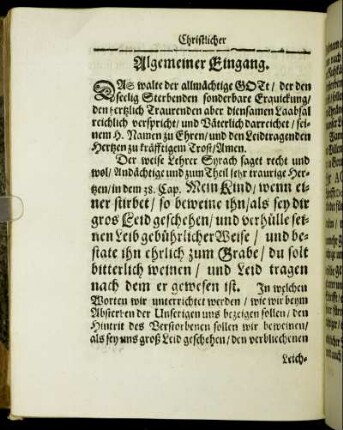 Christlicher
Allgemeiner Eingang.
DAS walte der allmächtige GOTt / der den
seelig Sterbenden sonderbare Erquickung /
den hertzlich Traurenden aber diensamen Laabsal
reichlich verspricht / und Väterlich darreichet / sei-
nem H. Namen zu Ehren / und den Leidtragenden
Hertzen zu kräfftigem Trost / Amen.
Der weise Lehrer Syrach saget recht und
wol / Andächtige und zum Theil sehr traurige Her-
tzen / in dem 38. Cap. Mein Kind / wenn ei-
ner stirbet / so beweine ihn / als sey dir
gros Leid geschehen / und verhülle sei-
nen Leib gebührlicher Weise / und be-
state ihn ehrlich zum Grabe / du solt
bitterlich weinen / und Leid tragen
nach dem er gewesen ist. In welchen
Worten wir unterrichtet werden / wie wir beym
Absterben der Unserigen uns bezeigen sollen / den
Hintrit des Verstorbenen sollen wir beweinen /
als sey uns groß Leid geschehen / den verblichenen
Leich-